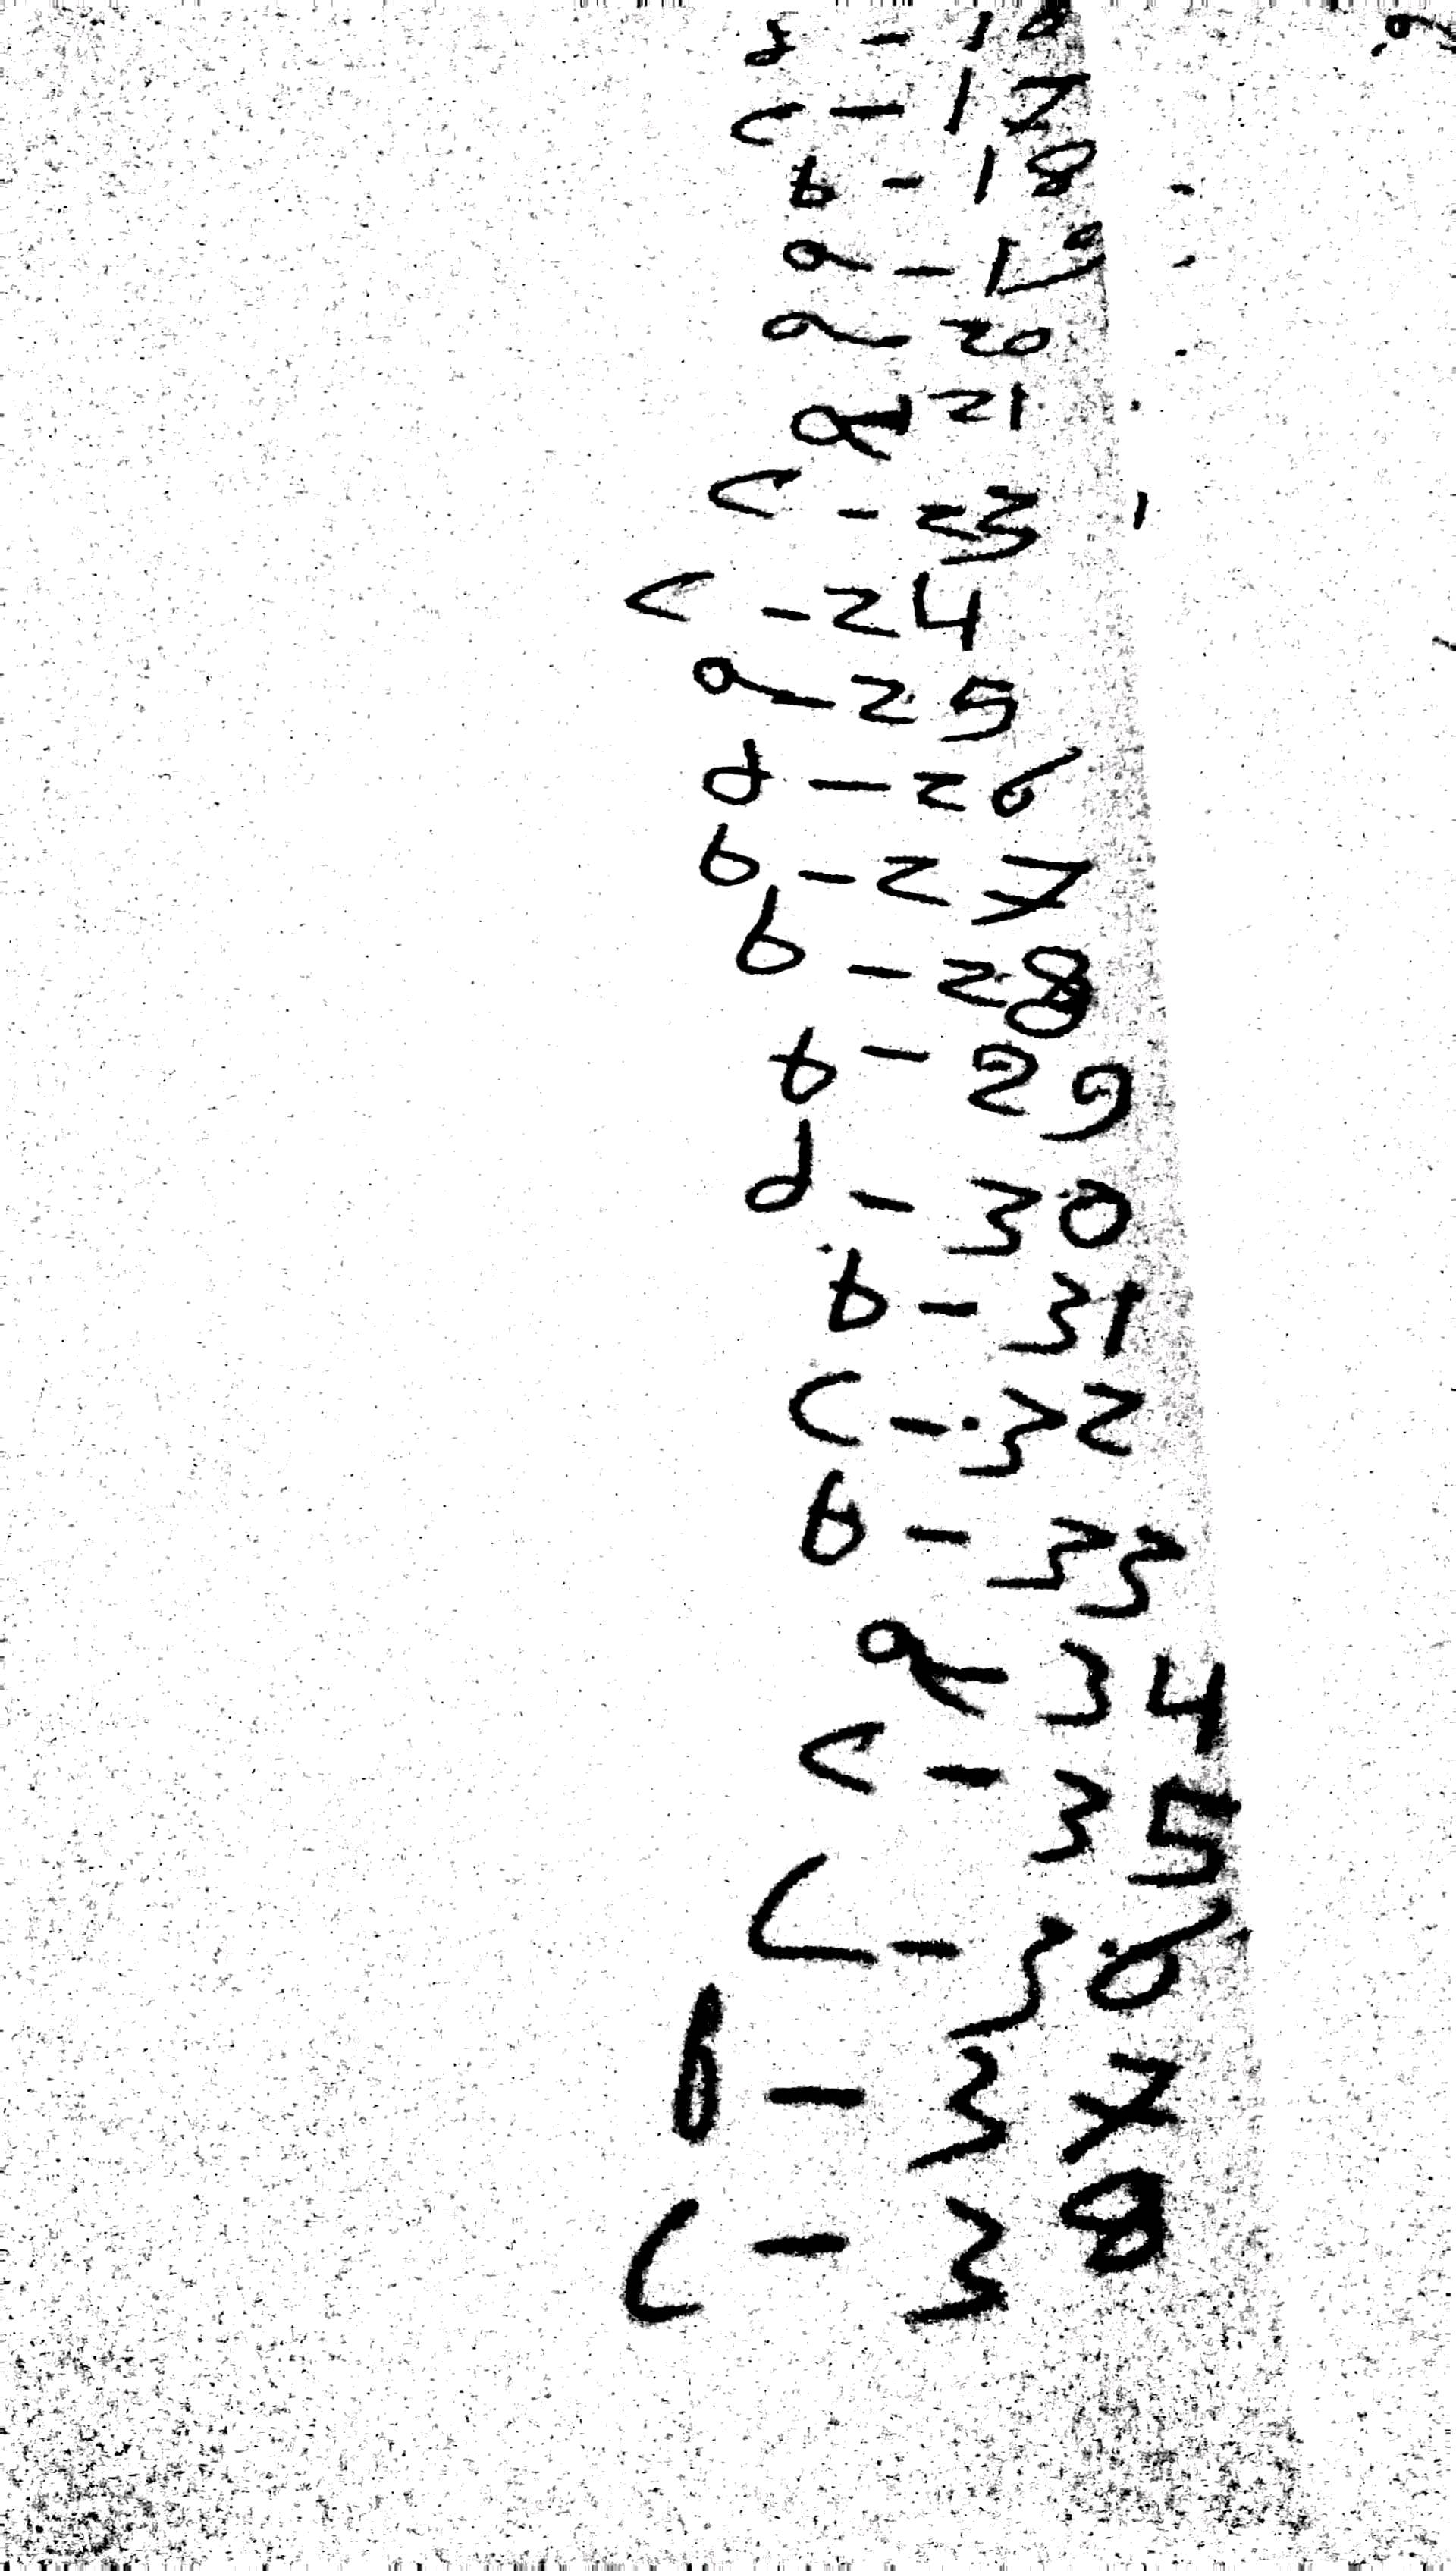 c - 17
b - 18
a - 19
a - 20
a - 21
c - 23
c - 24
a - 25
d - 26
b - 27
b - 28
b - 29
d - 30
b - 31
c - 32
b - 33
a - 34
c - 35
c - 36
b - 37
c - 38